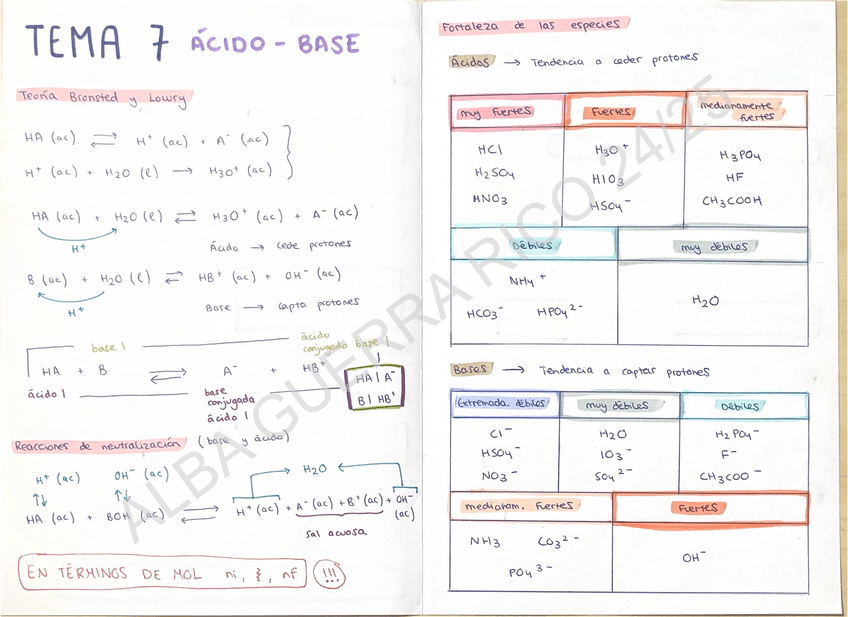 TEMA 7 ÁCIDO - BASE
Teoría Bronsted y Lowry
HA (ac) ⇌ H⁺ (ac) + A⁻ (ac)
H⁺ (ac) + H₂O (l) → H₃O⁺ (ac)
HA (ac) + H₂O (l) ⇌ H₃O⁺ (ac) + A⁻ (ac)
H⁺
Ácido → cede protones
B (ac) + H₂O (l) ⇌ HB⁺ (ac) + OH⁻ (ac)
H⁺
Base → capta protones
base 1
ácido
conjugado base 1
HA + B ⇌ A⁻ + HB⁺
HA | A⁻
B | HB⁺
ácido 1
base
conjugada
ácido 1
Reacciones de neutralización (base y ácido)
H⁺ (ac) OH⁻ (ac)
H₂O
HA (ac) + BOH (ac) ⇌ H⁺ (ac) + A⁻ (ac) + B⁺ (ac) + OH⁻
(ac)
sal acuosa
EN TÉRMINOS DE MOL ni, ξ, nf !!!
Fortaleza de las especies
Ácidos → Tendencia a ceder protones
muy fuertes
Fuertes
medianamente
fuertes
HCl
H₂SO₄
HNO₃
H₃O⁺
HIO₃
HSO₄⁻
H₃PO₄
HF
CH₃COOH
Débiles
muy débiles
NH₄⁺
HCO₃⁻ HPO₄²⁻
H₂O
Bases → Tendencia a captar protones
Extremada. débiles
muy débiles
Débiles
Cl⁻
HSO₄⁻
NO₃⁻
H₂O
IO₃⁻
SO₄²⁻
H₂PO₄⁻
F⁻
CH₃COO⁻
mediatam. fuertes
Fuertes
NH₃ CO₃²⁻
PO₄³⁻
OH⁻
ALBA GUERRA RICO 24/25